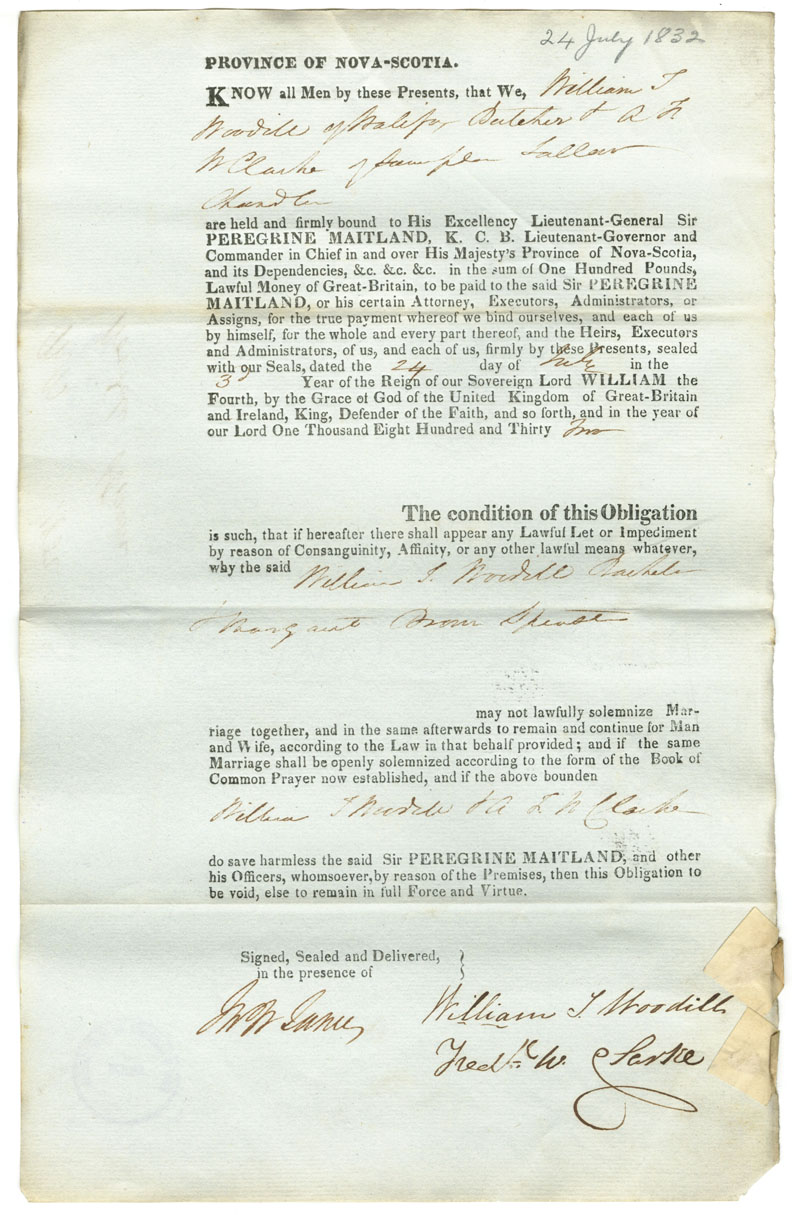 24 July 1832
PROVINCE OF NOVA-SCOTIA.
KNOW all Men by these Presents, that We, William T
Woodill of Halifax Butcher & A F
W Clarke of same place Tallow
Chandler
are held and firmly bound to His Excellency Lieutenant-General Sir
PEREGRINE MAITLAND, K. C. B. Lieutenant-Governor and
Commander in Chief in and over His Majesty's Province of Nova-Scotia,
and its Dependencies, &c. &c. &c. in the sum of One Hundred Pounds,
Lawful Money of Great-Britain, to be paid to the said Sir PEREGRINE
MAITLAND, or his certain Attorney, Executors, Administrators, or
Assigns, for the true payment whereof we bind ourselves, and each of us
by himself, for the whole and every part thereof, and the Heirs, Executors
and Administrators, of us, and each of us, firmly by these Presents, sealed
with our Seals, dated the 24 day of July in the
3d Year of the Reign of our Sovereign Lord WILLIAM the
Fourth, by the Grace of God of the United Kingdom of Great-Britain
and Ireland, King, Defender of the Faith, and so forth, and in the year of
our Lord One Thousand Eight Hundred and Thirty Two
The condition of this Obligation
is such, that if hereafter there shall appear any Lawful Let or Impediment
by reason of Consanguinity, Affinity, or any other lawful means whatever,
why the said William T. Woodill Bachelor
& Margaret Spinster
may not lawfully solemnize Mar-
riage together, and in the same afterwards to remain and continue for Man
and Wife, according to the Law in that behalf provided; and if the same
Marriage shall be openly solemnized according to the form of the Book of
Common Prayer now established, and if the above bounden
William T Woodill & A F W Clarke
do save harmless the said Sir PEREGRINE MAITLAND, and other
his Officers, whomsoever, by reason of the Premises, then this Obligation to
be void, else to remain in full Force and Virtue.
Signed, Sealed and Delivered, }
in the presence of }
William T. Woodill
Fredk. W. Clarke